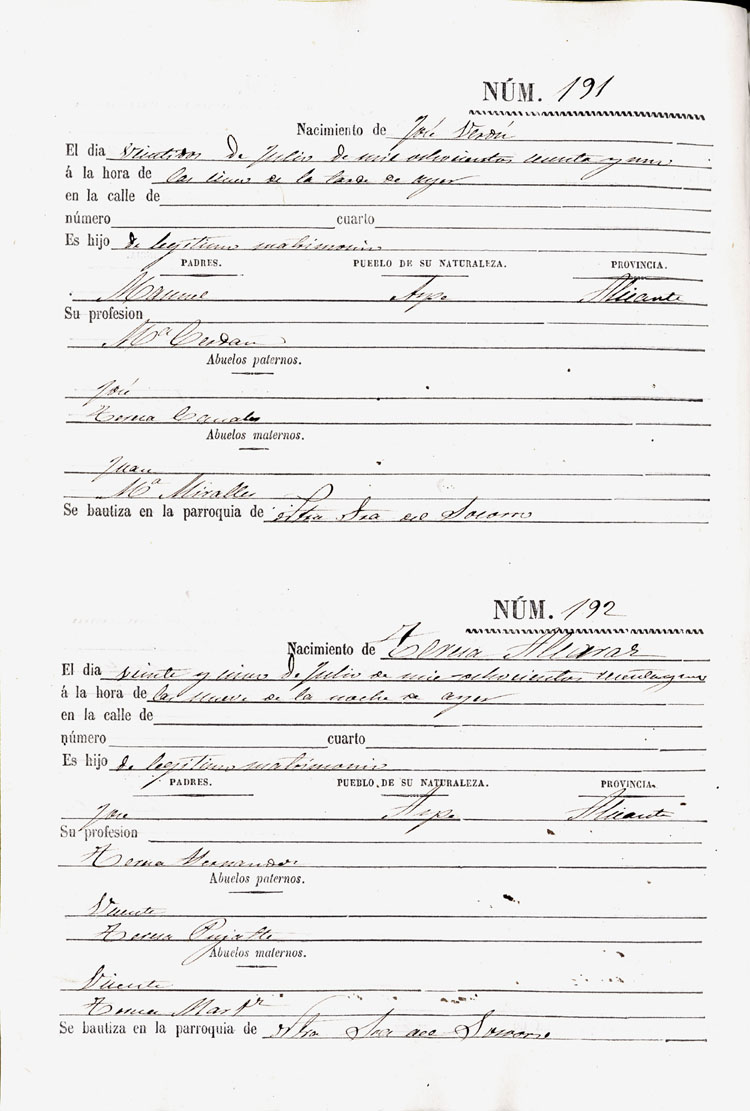 NÚM. 191
Nacimiento de José Verdú
El dia veintidos de Julio de mil ochocientos sesenta y uno
á la hora de las cinco de la tarde de ayer
en la calle de
número cuarto
Es hijo de legitimo matrimonio
PADRES. PUEBLO DE SU NATURALEZA. PROVINCIA.
Manuel Aspe Alicante
Su profesion
Mª Cerdan
Abuelos paternos.
José
Teresa Canals
Abuelos maternos.
Juan
Mª Miralles
Se bautiza en la parroquia de Ntra Sra del Socorro
NÚM. 192
Nacimiento de Teresa Alcaraz
El dia veinte y cinco de Julio de mil ochocientos sesenta y uno
á la hora de las nueve de la noche de ayer
en la calle de
número cuarto
Es hijo de legitimo matrimonio
PADRES. PUEBLO DE SU NATURALEZA. PROVINCIA.
José Aspe Alicante
Su profesion
Teresa Hernandez
Abuelos paternos.
Vicente
Teresa Pujalte
Abuelos maternos.
Vicente
Teresa Martz
Se bautiza en la parroquia de Ntra Sra del Socorro